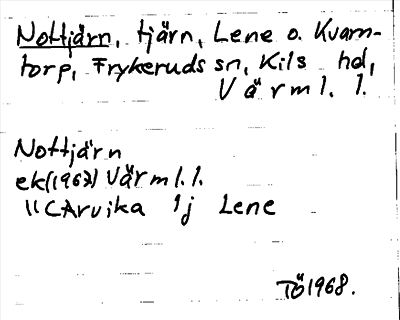 Nottjärn, tjärn, Lene o. Kvarn-
torp, Frykeruds sn, Kils hd,
Värml. l.
Nottjärn
ek(1967) Värml. l.
11C Arvika 1j Lene
TÖ 1968.